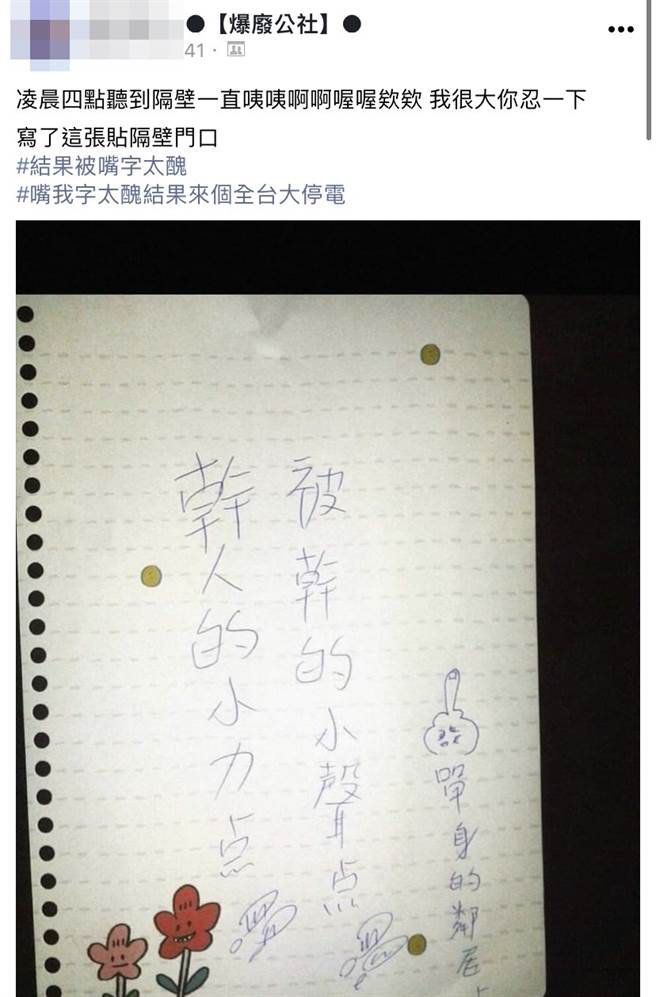 ●【爆廢公社】●
41 ·
凌晨四點聽到隔壁一直咦咦啊啊喔喔欸欸 我很大你忍一下
寫了這張貼隔壁門口
#結果被嘴字太醜
#嘴我字太醜結果來個全台大停電
被幹的小聲点
幹人的小力点
單身的鄰居